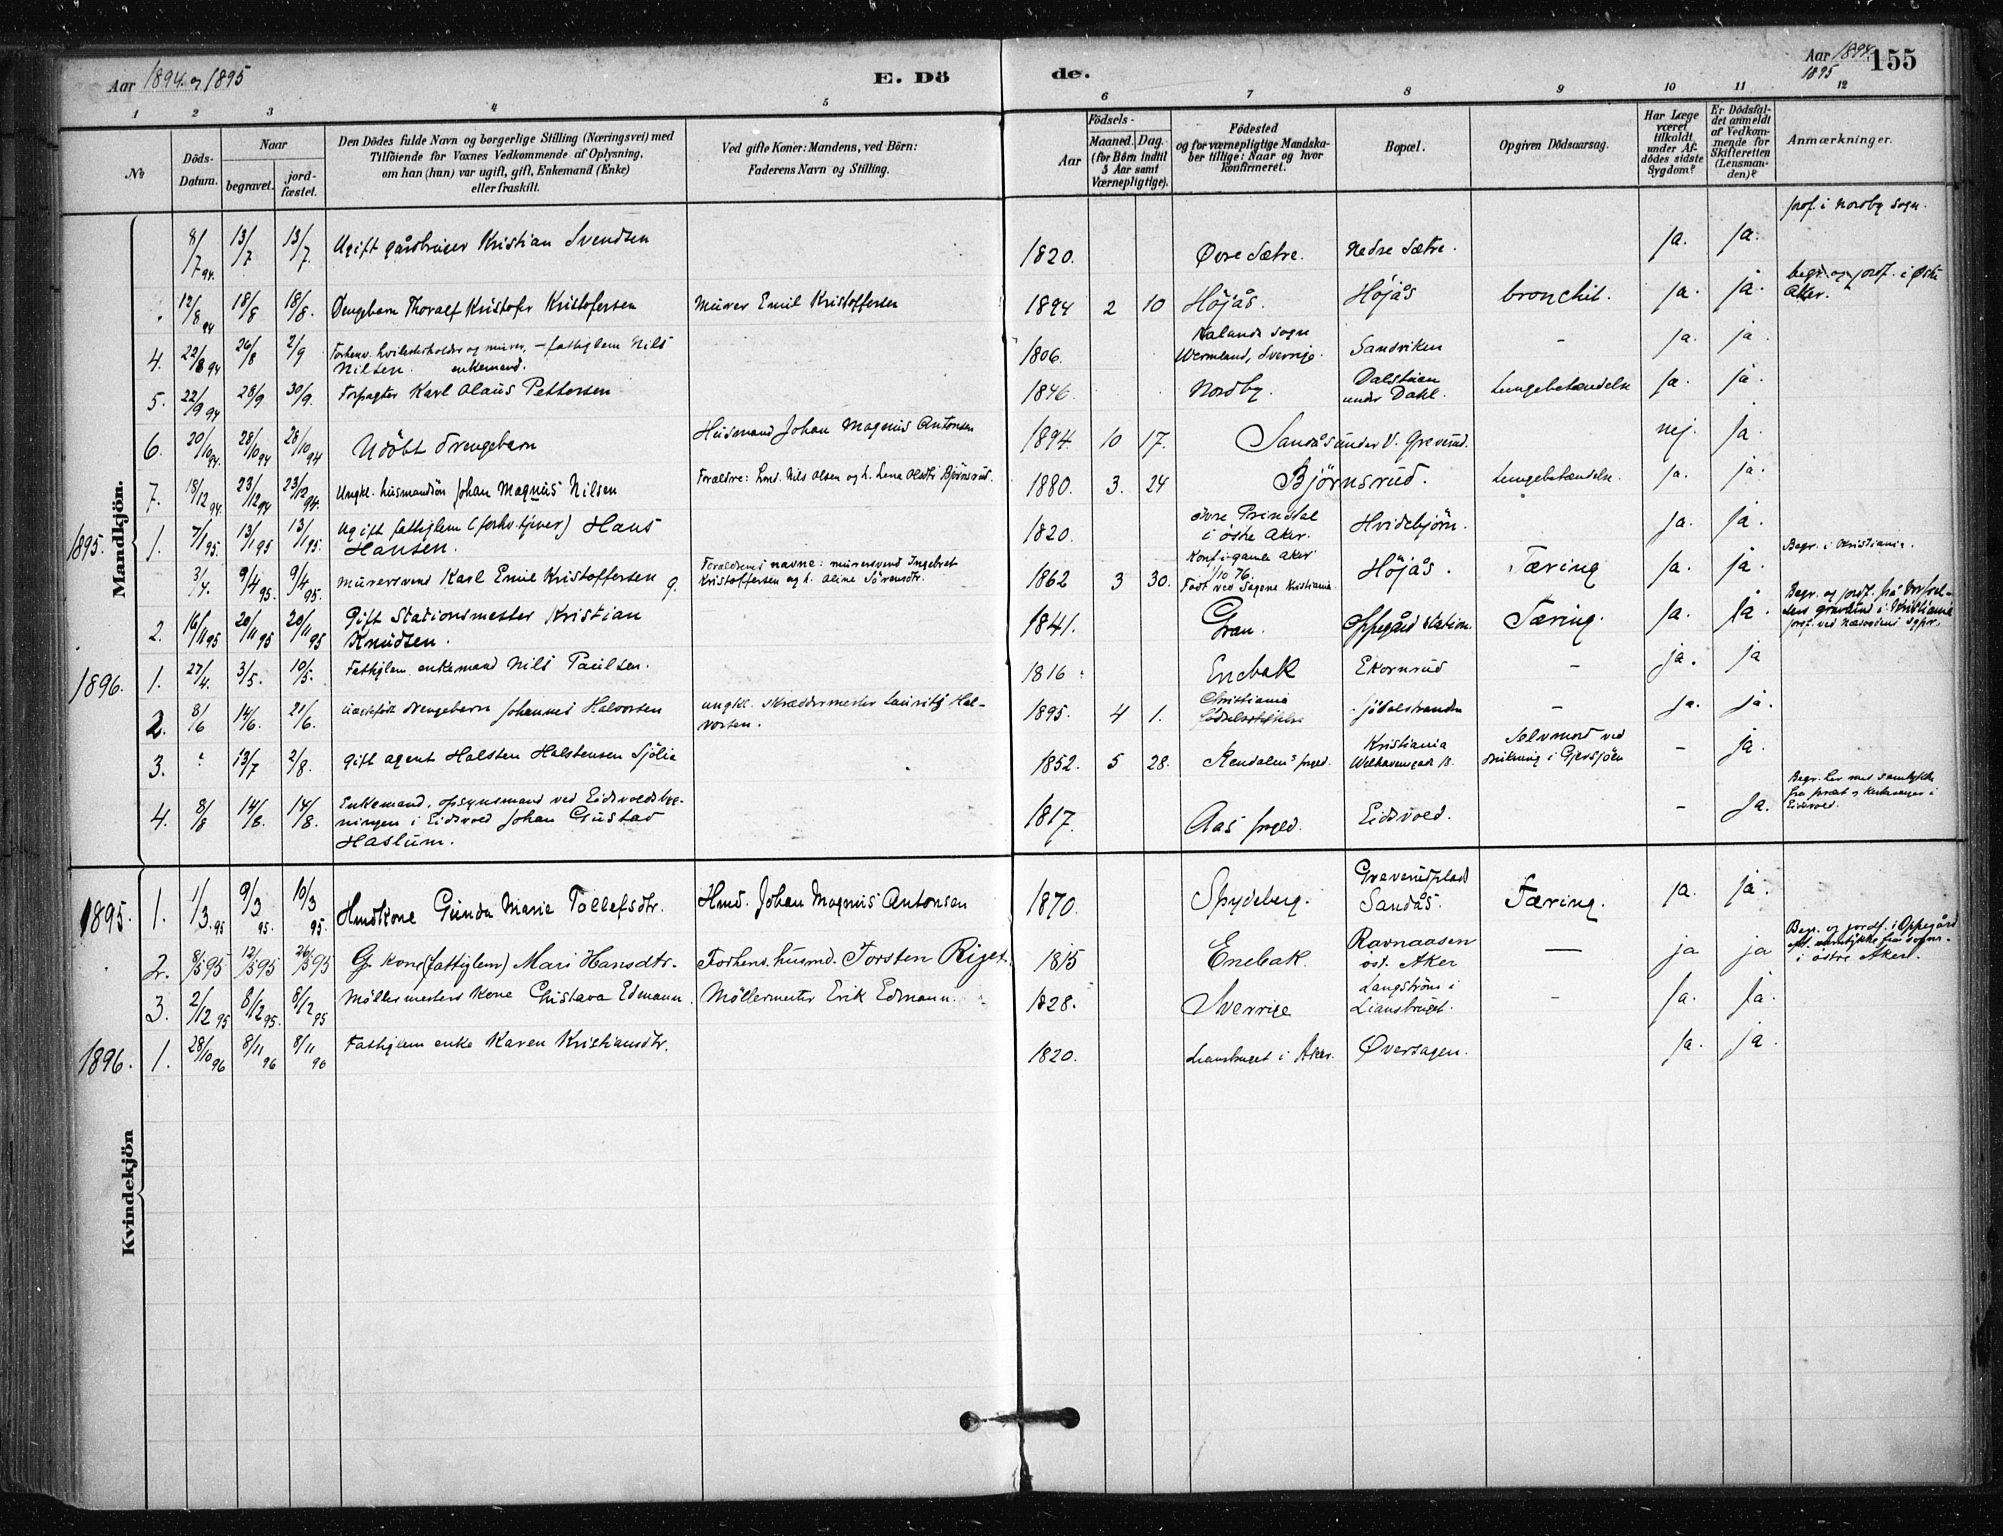 Aar 1894 og 1895
E. Dö
de.
Aar 1894.
1895
155
1 2 3 4 5 6 7 8 9 10 11 12
No
Döds-
Datum.
Naar
begravet.
jord-
fæstet.
Den Dödes fulde Navn og borgerlige Stilling (Næringsvei) med
Tilföiende for Voxnes Vedkommende af Oplysning,
om han (hun) var ugift, gift, Enkemand (Enke)
eller fraskilt.
Ved gifte Koner: Mandens, ved Börn:
Faderens Navn og Stilling.
Födsels-
Aar
Maaned. Dag.
(for Börn indtil
5 Aar samt
Værnepligtige).
Födested
og for værnepligtige Mandska-
ber tillige: Naar og hvor
konfirmeret.
Bopæl.
Opgiven Dödsaarsag.
Har Læge
været
tilkaldt
under Af-
dödes sidste
Sygdom?
Er Dödsfal-
det anmeldt
af Vedkom-
mende for
Skifteretten
(Lensman-
den)?
Anmærkninger.
Mandkjön.
8/7 94. 13/7 13/7. Ugift gårdbruger Kristian Svendsen 1820. Øvre Sætre. Nedre Sætre. ja. ja. jordf. i Nordby sogn.
12/8 94 18/8 18/8. Drengebarn Thoralf Kristofer Kristofersen Murer Emil Kristoffersen 1894 2 10 Höjås. Höjås bronchit. ja. ja. begr. og jordf. i Østre
Aker.
4. 22/8 94 26/8 2/9 Forhenv. hvilesterholder og murer, – fattiglem Nils
Nilsen. enkemand. 1806. sogn
Wermland, Sverrige. Sandviken – ja. ja
5. 22/9 94 28/9 30/9. Forpagter Karl Olaus Pettersen 1846. Nordby. Dalstuen
under Dahl. Lungebetændelse ja. ja.
6. 20/10 94. 28/10 94 28/10 94 Udöbt drengebarn Husmand Johan Magnus Antonsen 1894. 10 17. Sandås under V. Greverud. nej. ja.
7. 18/12 94. 23/12 94 23/12 94. Ungkl. husmandsön Johan Magnus Nilsen Forældre: husmd. Nils Olsen og h. Lene Olsdtr Björnsrud. 1880. 3. 24 Björnsrud. Lungebetændelse. ja. ja.
1895. 1. 7/1 95. 13/1 95 13/1 95. Ugift fattiglem (forhv. tjener) Hans
Hansen. 1820. Øvre Prindsdal
i østre Aker. Hvidebjörn. ja. ja.
3/4. 9/4 95. 9/4 95. Murersvend Karl Emil Kristoffersen g. Forældrenes navne: murersvend Ingebret
Kristoffersen og h. Oline Sörensdtr. 1862 3 30. Konf. i gamle Aker
1/10 76.
Födt ved Sagene Kristiania. Höjås. Tæring ja. ja. Begr. i Kristiania.
2. 16/11 95 20/11 95 20/11 95 Gift Stationsmester Kristian
Knudsen. 1841. Gran. Oppegård station. Tæring. ja. ja. Begr. og jordf. på Vor frel-
sers gravlund i Kristiania
1896. 1. 27/4. 3/5. 10/5. Fattiglem enkemand Nils Paulsen. 1816 Enebak Ekornrud – ja. ja
2. 8/6 14/6. 21/6. drengebarn Johannes Halvorsen ungkl. skræddermester Lauritz Hal-
vorsen. 1895. 4 1. Christiania
födselsstiftelse Jödalstranden – ja. ja.
3. ? 13/7 2/8. Gift agent Halsten Halstensen Sjölie 1852. 5 28. Rendalens prgjld. Kristiania
Welhavensgade 13. Selvmord ved
drukning i Gjersjöen – ja.
4. 8/8 14/8. 14/8. Enkemand, opsynsmand ved Eidsvoldsbyg-
ningen i Eidsvold Johan Gustad
Haslum. 1817. Aas prgjeld. Eidsvold. – ja. Begr. her med samtykke
fra præst og kirkesanger i
Eidsvold.
1895 1. 1/3. 95 9/3 95. 10/3 95. Hmdkone Gunda Marie Tollefsdtr. Hmd. Johan Magnus Antonsen 1870. Spydeberg. Greverudplads
Sandås. Tæring. ja. ja.
2. 8/5 95 12/5 95 26/5 95 G. kone (fattiglem) Mari Hansdtr. Forhenv. husmd. Torsten Riget. 1815 Enebak. Ravnaasen
öst. Aker — ja ja Begr. og jordf. i Oppegård
eft. samtykke fra sogn.
i østre Aker.
3. 2/12 95 8/12 95. 8/12 95 Möllermesters kone Gustava Edmann. Möllermester Erik Edmann. 1828. Sverrige Langström i
Ljansbruget. – ja. ja.
1896. 1. 28/10 96 8/11 96 8/11 96 Fattiglem enke Karen Kristiansdtr. 1820. Ljansbruget i Aker. Øversagen. ja. ja.
Kvindekjön